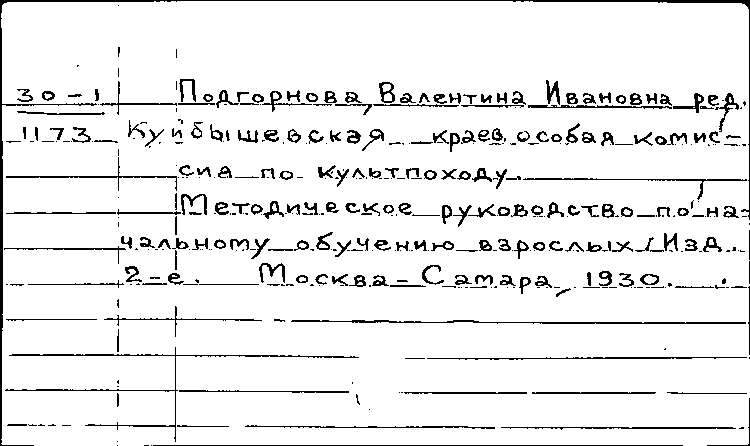 30-1 Подгорнова, Валентина Ивановна ред.
1173 Куйбышевская краев. особая комис-
сия по культпоходу.
Методическое руководство по на-
чальному обучению взрослых / Изд.
2-е. Москва-Самара, 1930.